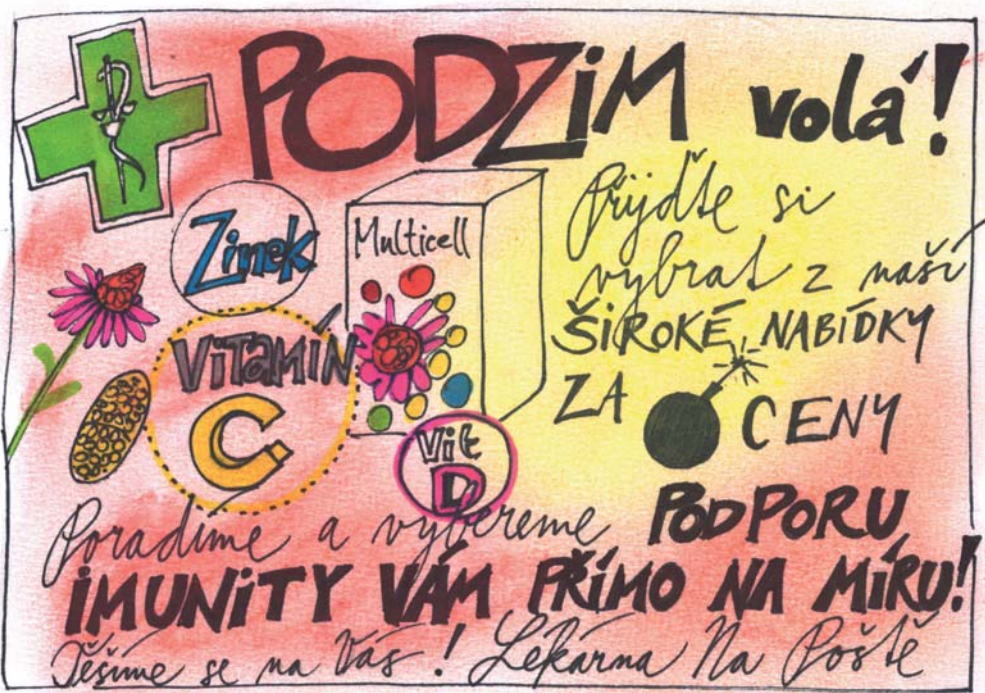 PODZiM volá!
Zinek
Multicell
Přijďte si
vybrat z naší
ŠiROKÉ NABÍDKY
ZA CENY
ViTAMÍN
C
Vit
D
Poradíme a vybereme PODPORU
iMUNiTY VÁM PŘÍMO NA MÍRU!
Těšíme se na Vás! Lékárna Na Poště